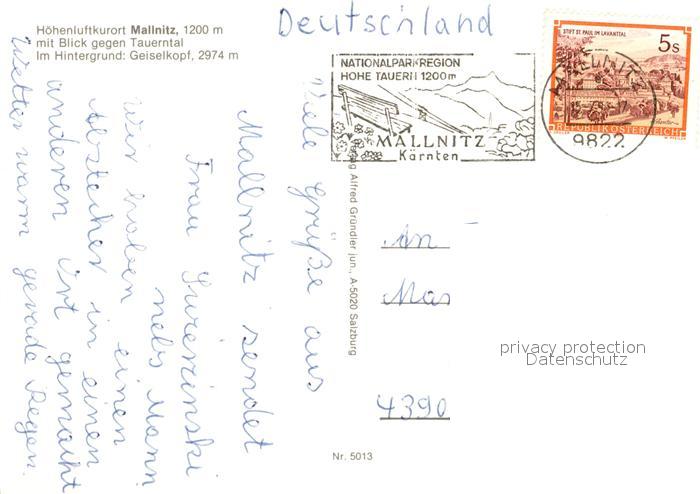 Höhenluftkurort Mallnitz, 1200 m
mit Blick gegen Tauerntal
Im Hintergrund: Geiselkopf, 2974 m
Deutschland
NATIONALPARKREGION
HOHE TAUERN 1200m
MALLNITZ
Kärnten
STIFT ST. PAUL IM LAVANTTAL
5s
REPUBLIK ÖSTERREICH
9822
Viele Grüße aus
Mallnitz sendet
Frau
nebs Mann
wir haben einen
Abstecher in einen
anderen Ort gemacht
Wetter warm gerade Regen.
Alfred Gründler jun., A-5020 Salzburg
An
4390
privacy protection
Datenschutz
Nr. 5013